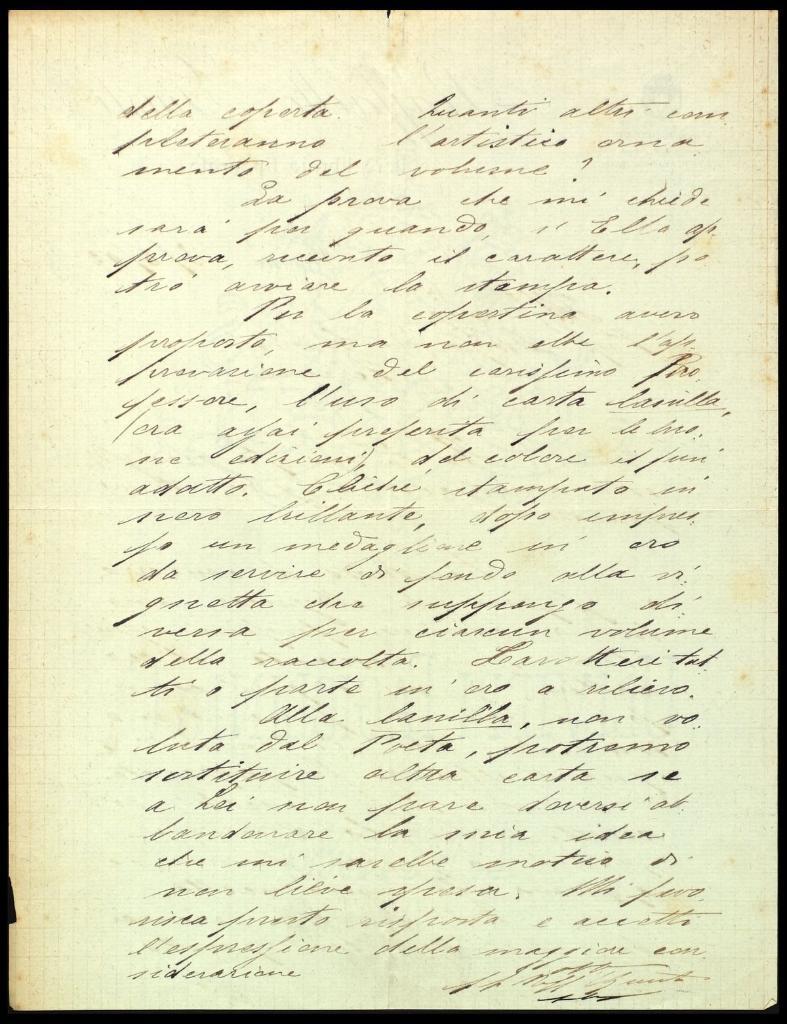 della coperta. Quanti altri com
pleteranno l'artistico orna
mento del volume?
La prova che mi chiede
sarà per quando, s'Ella ap
prova, ricevuto il carattere, po
trò avviare la stampa.
Per la copertina avevo
proposto, ma non ebbe l'ap
provazione del carissimo Pro
fessore, l'uso di carta lanilla,
(ora assai preferita per le buo
ne edizioni), del colore il più
adatto. Clichè stampato in
nero brillante, dopo impres
so un medaglione in oro
da servire di fondo alla vi
gnetta che suppongo di
versa per ciascun volume
della raccolta. Caratteri tut
ti o parte in oro a rilievo.
Alla lanilla, non vo
luta dal Poeta, potremo
sostituire altra carta se
a Lei non pare doversi ab
bandonare la mia idea
che mi sarebbe motivo di
non lieve spesa. Mi favo
risca presto risposta e accetti
l'espressione della maggior con
siderazione